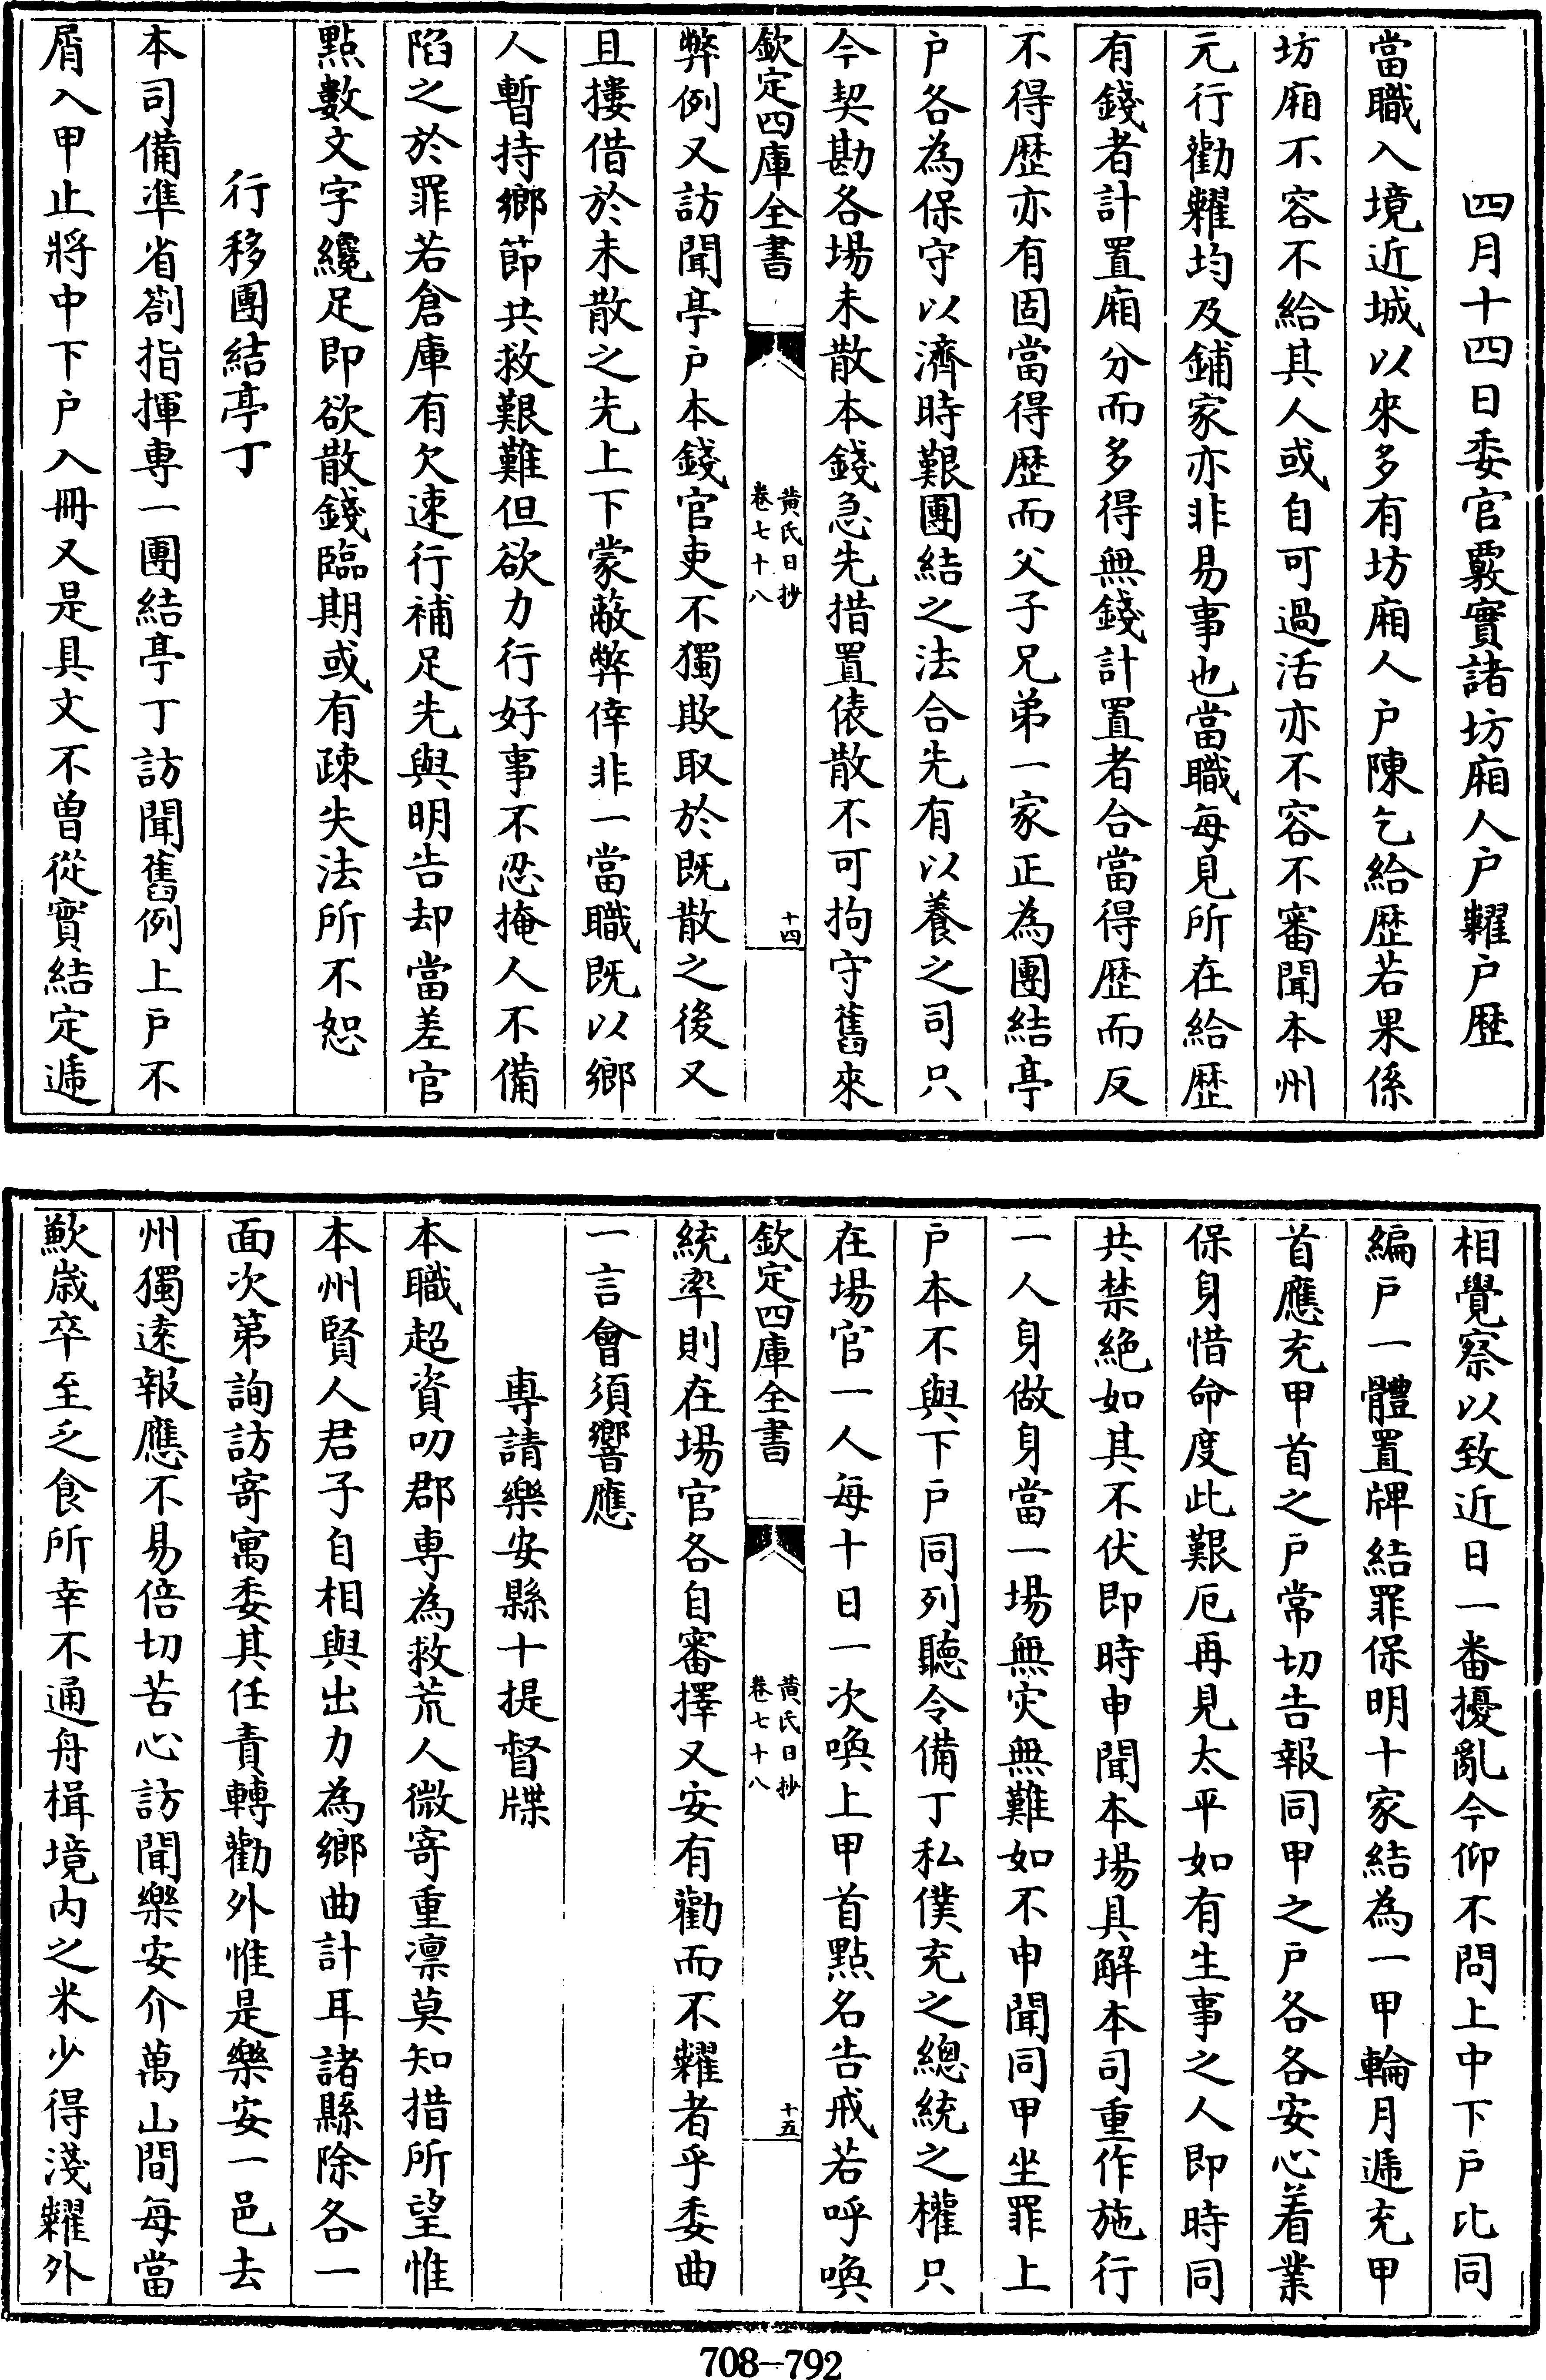 四月十四日委官覈實諸坊廂人户糶户歴
當職入境近城以來多有坊廂人户陳乞給歴若果係
坊廂不容不給其人或自可過活亦不容不審聞本州
元行勸糶均及鋪家亦非易事也當職每見所在給歴
有錢者計置廂分而多得無錢計置者合當得歴而反
不得歴亦有固當得歴而父子兄弟一家正為團結亭
户各為保守以濟時艱團結之法合先有以養之司只
今契勘各場未散本錢急先措置俵散不可拘守舊來
欽定四庫全書
黄氏日抄
卷七十八
十四
弊例又訪聞亭户本錢官吏不獨欺取於既散之後又
且摟借於未散之先上下蒙蔽弊倖非一當職既以鄉
人暫持鄉節共救艱難但欲力行好事不忍掩人不備
陷之於罪若倉庫有欠速行補足先與明告却當差官
點數文字纔足即欲散錢臨期或有疎失法所不恕
行移團結亭丁
本司備凖省劄指揮専一團結亭丁訪聞舊例上户不
屑入甲止將中下户入冊又是具文不曽從實結定遞
相覺察以致近日一番擾亂今仰不問上中下户比同
編户一體置牌結罪保明十家結為一甲輪月遞充甲
首應充甲首之户常切告報同甲之户各各安心着業
保身惜命度此艱厄再見太平如有生事之人即時同
共禁絶如其不伏即時申聞本場具解本司重作施行
一人身做身當一場無灾無難如不申聞同甲坐罪上
户本不與下户同列聽令備丁私僕充之總統之權只
在場官一人每十日一次喚上甲首點名告戒若呼喚
欽定四庫全書
黄氏日抄
卷七十八
十五
統率則在場官各自審擇又安有勸而不糶者乎委曲
一言會須響應
専請樂安縣十提督牒
本職超資叨郡専為救荒人微寄重凛莫知措所望惟
本州賢人君子自相與出力為鄉曲計耳諸縣除各一
面次第詢訪寄寓委其任責轉勸外惟是樂安一邑去
州獨逺報應不易倍切苦心訪聞樂安介萬山間每當
歉歳卒至乏食所幸不通舟楫境内之米少得淺糶外
708-792